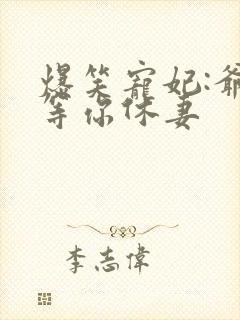 爆笑寵妃:爺
等你休妻
李志偉